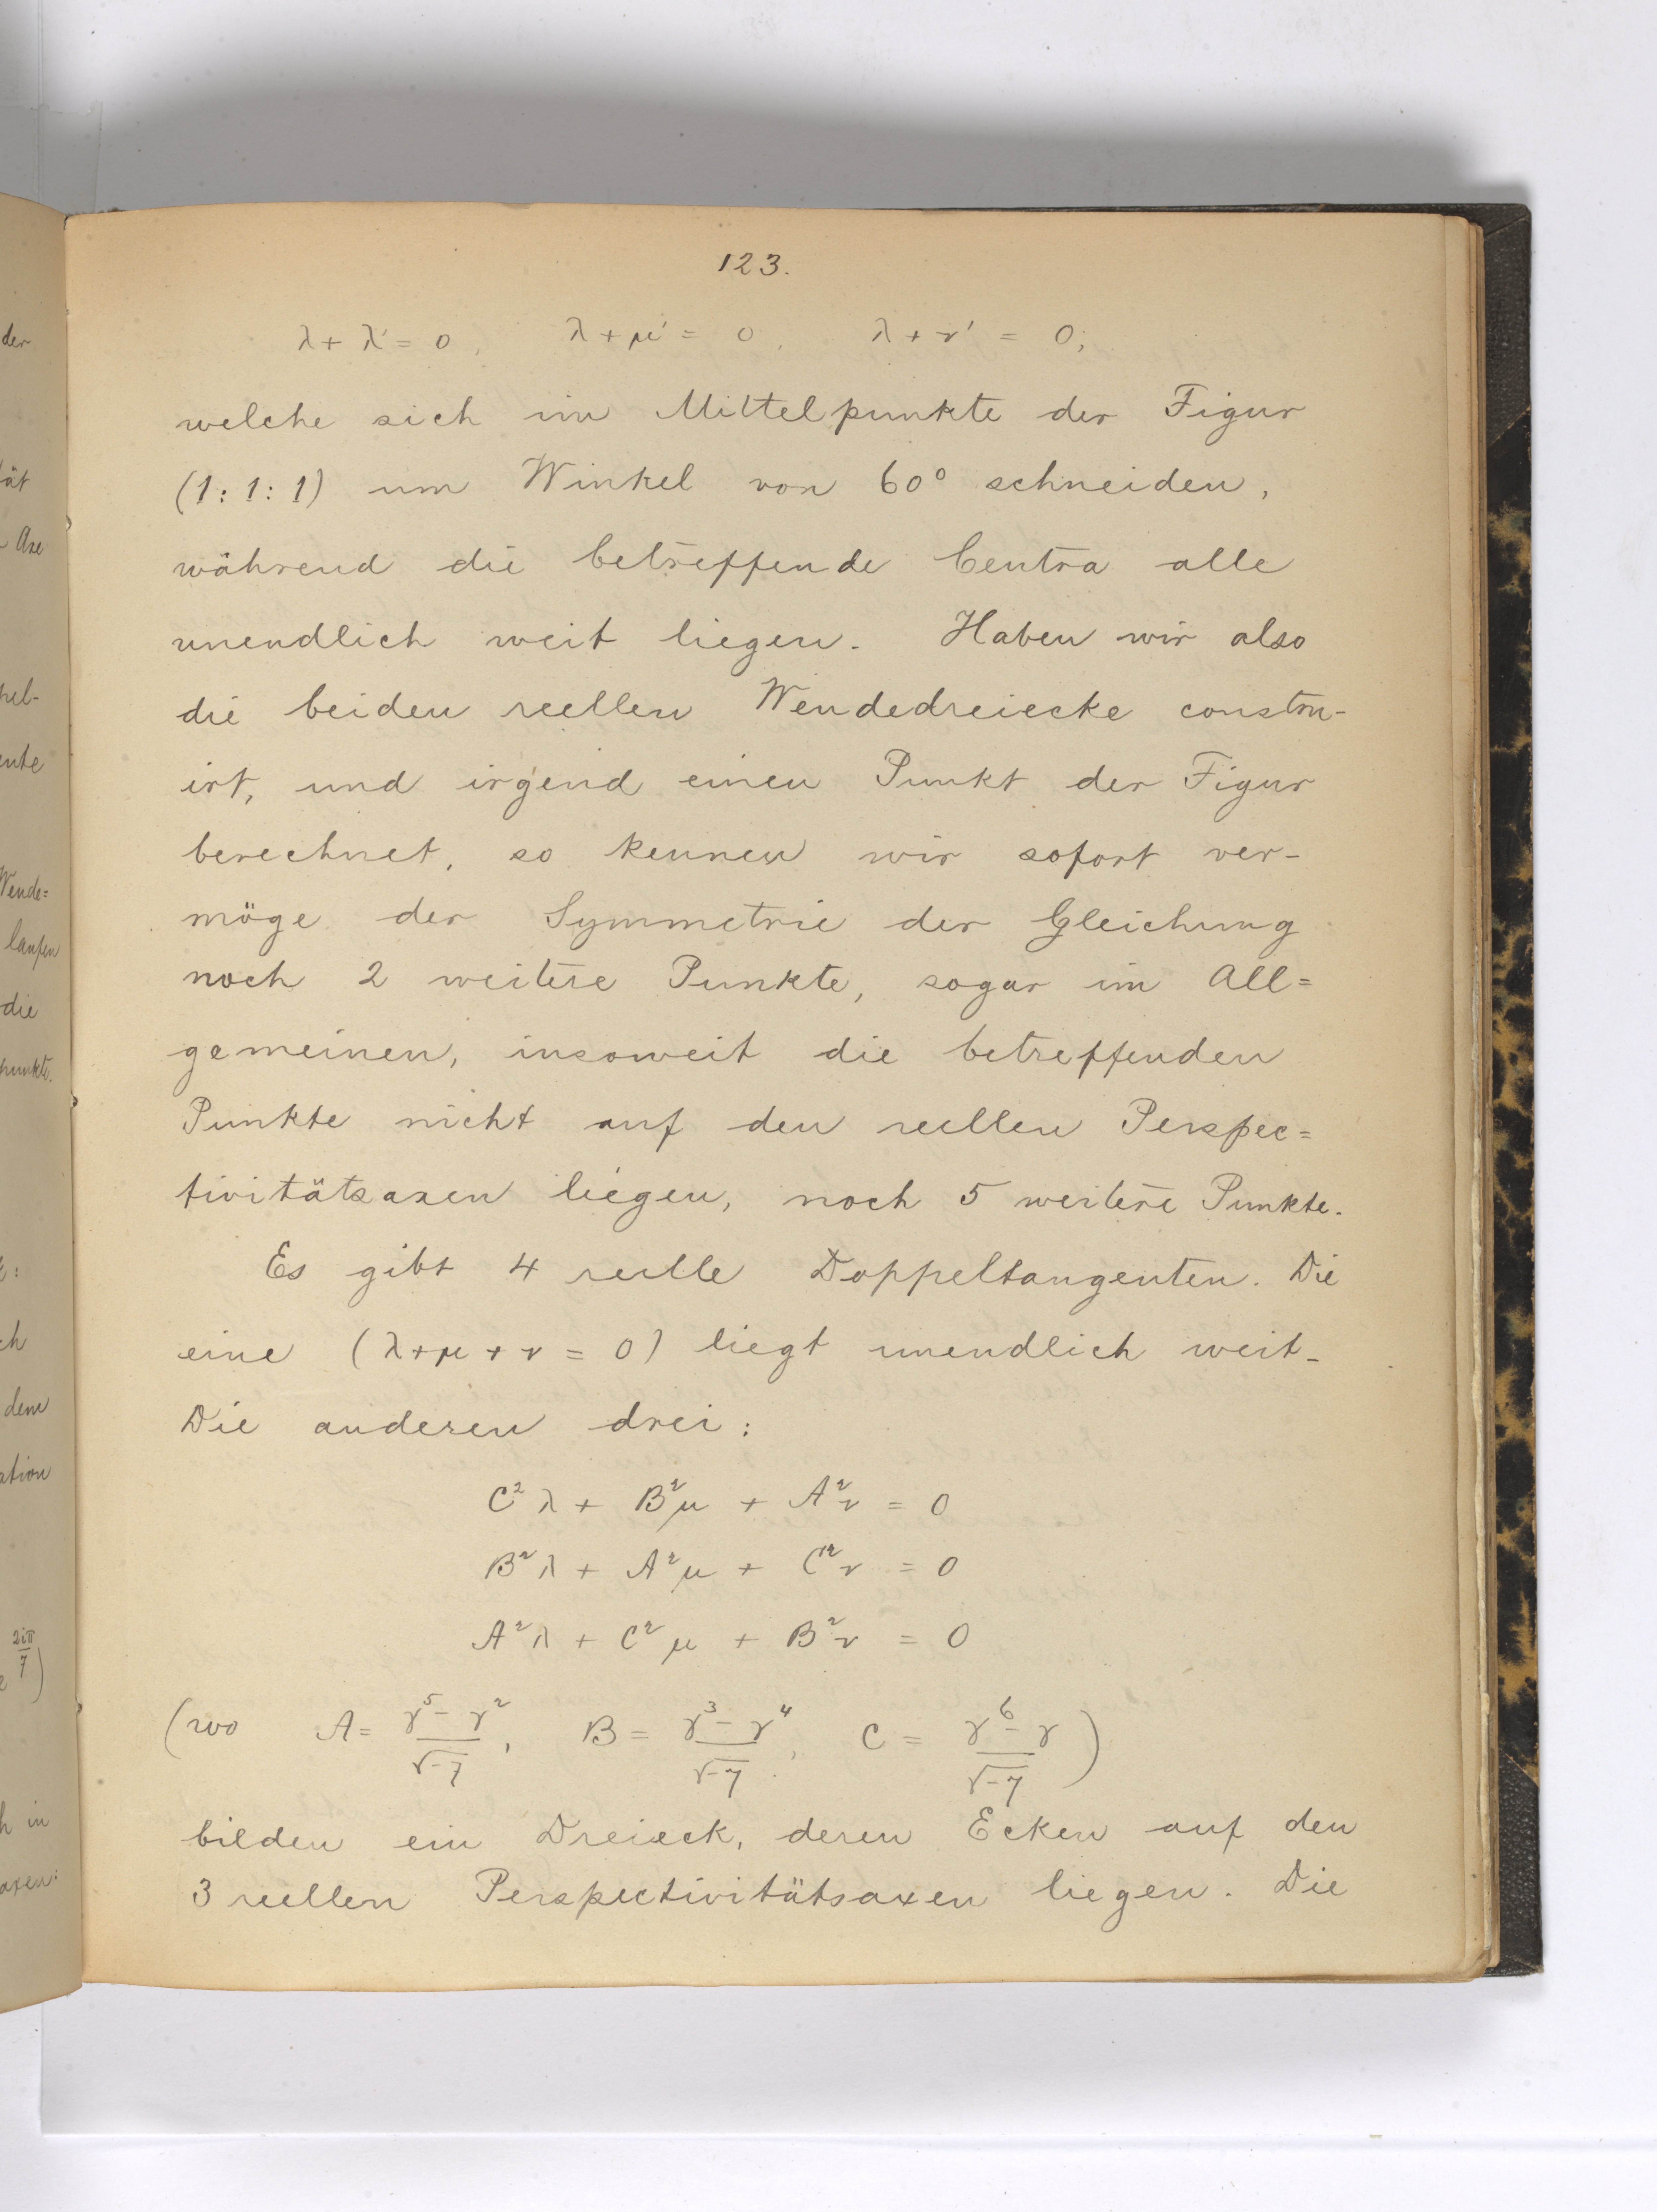 123.
λ + λ' = 0, λ + μ' = 0, λ + ν' = 0;
welche sich im Mittelpunkte der Figur
(1:1:1) um Winkel von 60° schneiden,
während die betreffende Centra alle
unendlich weit liegen. Haben wir also
die beiden reellen Wendedreiecke constru-
irt, und irgend einen Punkt der Figur
berechnet, so kennen wir sofort ver-
möge der Symmetrie der Gleichung
noch 2 weitere Punkte, sogar im All=
gemeinen, insoweit die betreffenden
Punkte nicht auf den reellen Perspec=
tivitätsaxen liegen, noch 5 weitere Punkte.
Es gibt 4 reelle Doppeltangenten. Die
eine (λ+μ+ν = 0) liegt unendlich weit.
Die anderen drei:
C²λ + B²μ + A²ν = 0
B²λ + A²μ + C²ν = 0
A²λ + C²μ + B²ν = 0
(wo A = (γ⁵ - γ²)/√-7, B = (γ³ - γ⁴)/√-7, C = (γ⁶ - γ)/√-7)
bilden ein Dreieck, deren Ecken auf den
3 reellen Perspectivitätsaxen liegen. Die
der
ät
Axe
die
punkte.
Wende=
laufen
dem
ation
2iπ/7)
h in
axen: